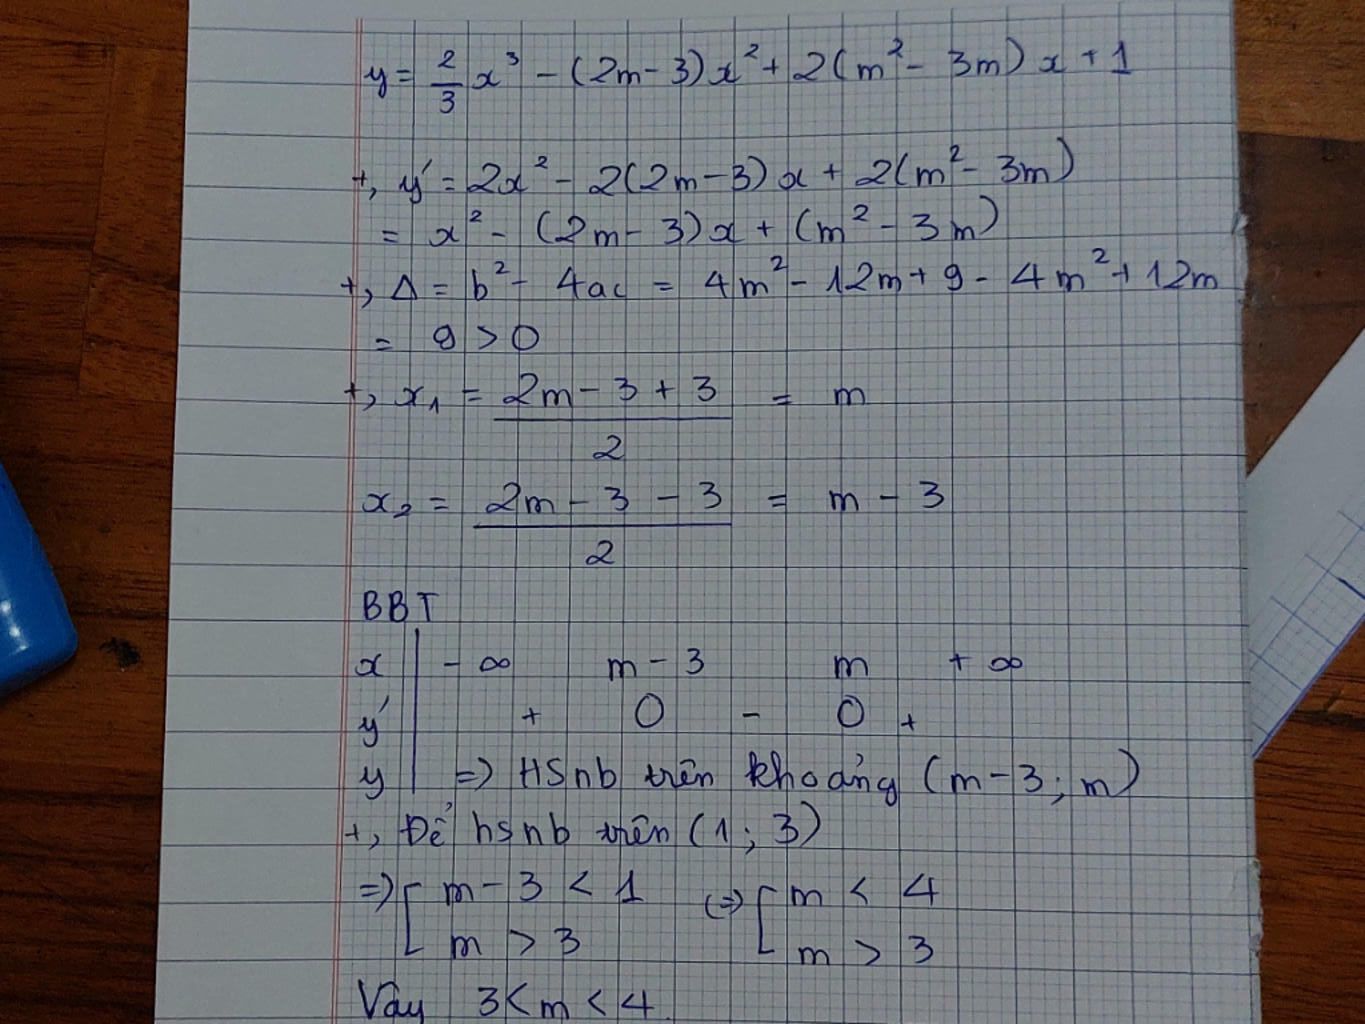 y = 2/3 x³ - (2m - 3)x² + 2(m² - 3m) x + 1
+, y' = 2x² - 2(2m - 3)x + 2(m² - 3m)
= x² - (2m - 3)x + (m² - 3m)
+, Δ = b² - 4ac = 4m² - 12m + 9 - 4m² + 12m
= 9 > 0
+, x₁ = (2m - 3 + 3)/2 = m
x₂ = (2m - 3 - 3)/2 = m - 3
BBT
x | -∞ m - 3 m +∞
y' | + 0 - 0 +
y | => HSnb trên khoảng (m - 3; m)
+, Để hsnb trên (1; 3)
=> [ m - 3 < 1 (=> [ m < 4
m > 3 m > 3
Vậy 3 < m < 4